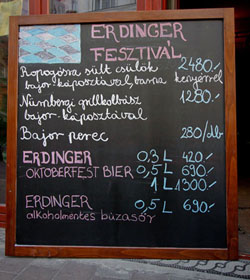 ERDINGER
FESZTIVÁL
Ropogósra sült csülök 2480.-
bajor káposztával, barna kenyérrel
Nürnbergi grillkolbász 1280.-
bajor káposztával
Bajor perec 280/db
ERDINGER 0,3 L 420.-
OKTOBERFEST BIER 0,5 L 690.-
1 L 1300.-
ERDINGER
alkoholmentes búzasör 0,5 L 690.-